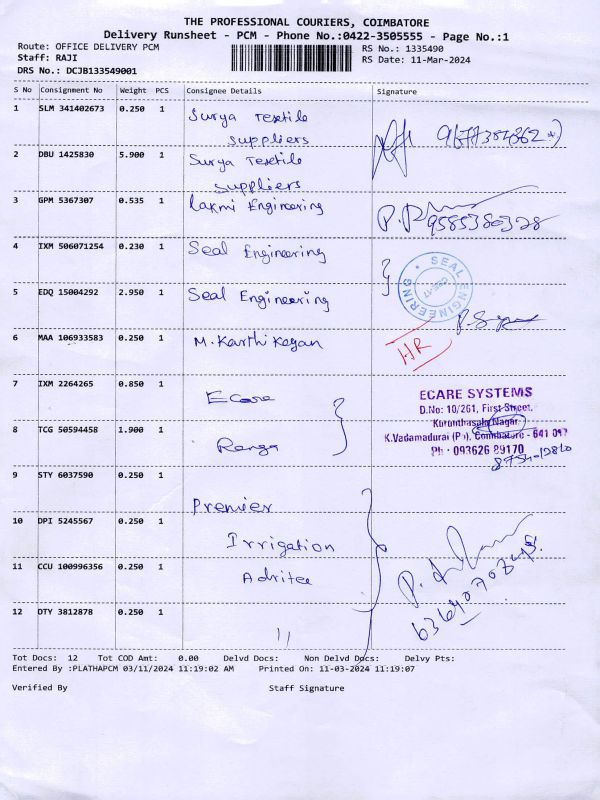 THE PROFESSIONAL COURIERS, COIMBATORE
Delivery Runsheet - PCM - Phone No.:0422-3505555 - Page No.:1
Route: OFFICE DELIVERY PCM
RS No.: 1335490
Staff: RAJI
RS Date: 11-Mar-2024
DRS No.: DCJB133549001
S No Consignment No Weight PCS Consignee Details Signature
1 SLM 341402673 0.250 1 Surya Textile
suppliers
2 DBU 1425830 5.900 1 Surya Textile
suppliers
3 GPM 5367307 0.535 1 Lakmi Engineering
9585380328
4 IXM 506071254 0.230 1 Seal Engineering
SEAL ENGINEERING
5 EDQ 15004292 2.950 1 Seal Engineering
6 MAA 106933583 0.250 1 M. Karthikeyan
HR
7 IXM 2264265 0.850 1 Ecare
ECARE SYSTEMS
D.No: 10/261, First Street,
8 TCG 50594458 1.900 1 Ranga
Nagar
K.Vadamadurai (Po), Coimbatore - 641 017
Ph : 093626 89170
9 STY 6037590 0.250 1 Premier
10 DPI 5245567 0.250 1 Irrigation
11 CCU 100996356 0.250 1 Adritec
12 DTY 3812878 0.250 1 11
Tot Docs: 12 Tot COD Amt: 0.00 Delvd Docs: Non Delvd Docs: Delvy Pts:
Entered By :PLATHAPCM 03/11/2024 11:19:02 AM Printed On: 11-03-2024 11:19:07
Verified By Staff Signature